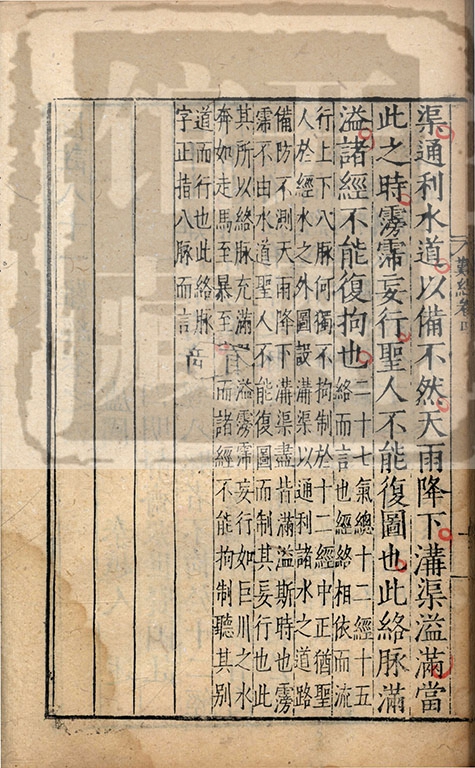 渠通利水道以備不然天雨降下溝渠溢滿當
此之時霶霈妄行聖人不能復圖也此絡脉滿
溢諸經不能復拘也
二十七氣總十二經十五
絡而言也經絡相依而流
行上下八脉何獨不拘制於十二經中正猶聖
人於經水之外圖設溝渠以通利諸水之道路
備防不測天雨降下溝渠盡皆滿溢斯時也霶
霈不由水道聖人不能復圖而制其妄行也此
其所以絡脉充滿溢霶霈妄行如巨川之水
奔如走馬至暴至而諸經不能拘制聽其别
道而行也此絡脉
字正指八脉而言
難經卷